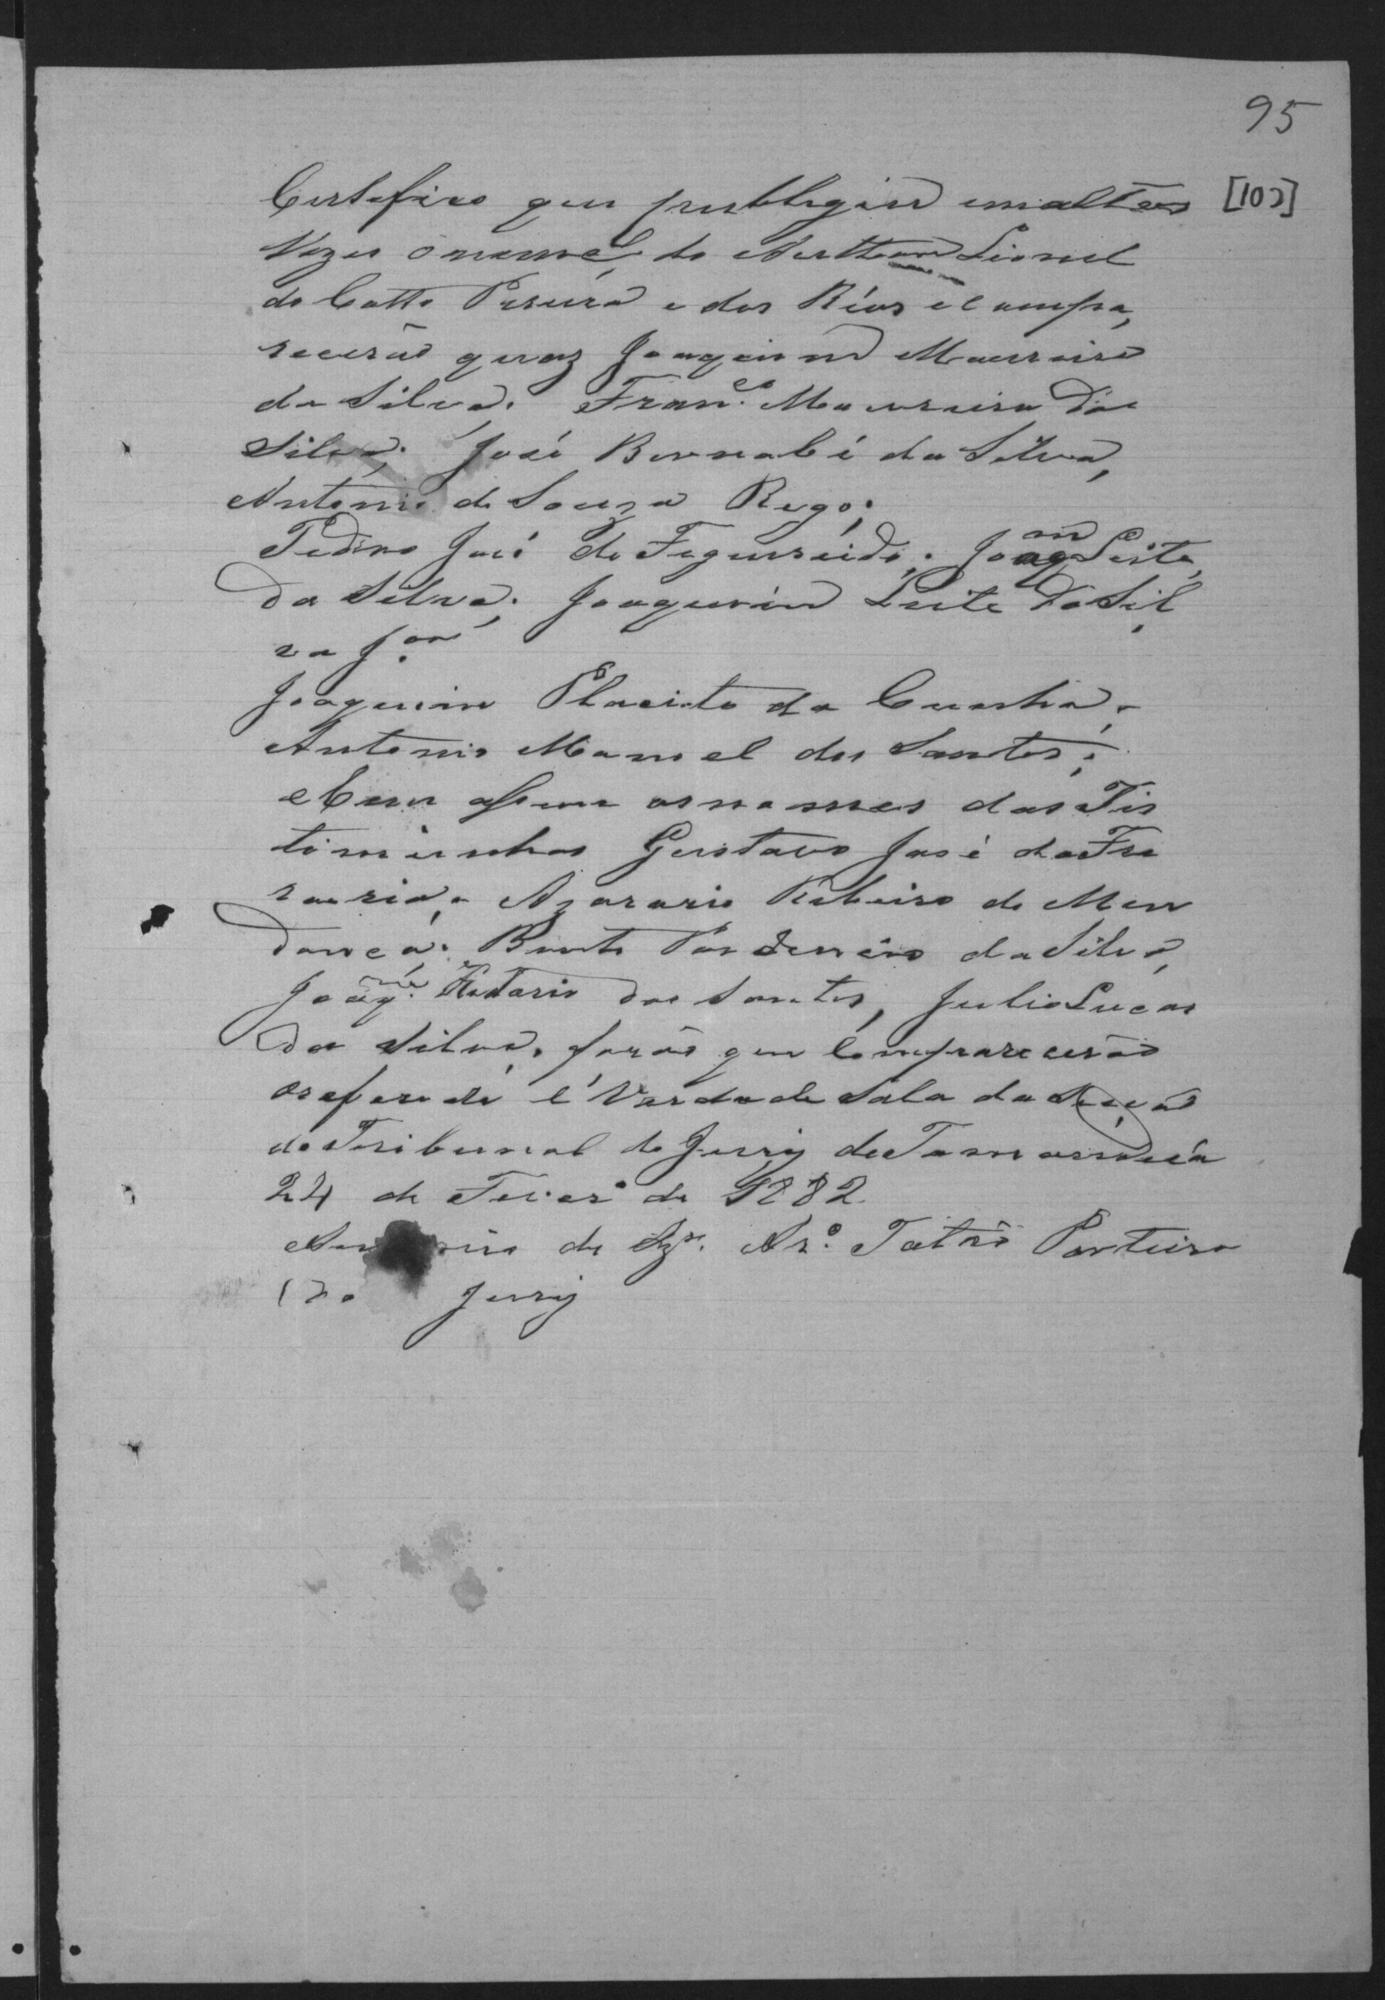 95
[102]
Certefico que prublequei em altas
Vozes o nome do Author Lionel
do Catto Pereira e dos Réos e Compa,
recerão quaz Joaquim Moureira
da Silva. Fran.co Moureira da
Silva, José Bernabé da Silva,
Antonio de Souza Rego;
Pedro José de Figueireido, Joaqm Leite
da Silva, Joaquim Leite da Sil
va Jor
Joaquim Placido da Cunha,
Antonio Manoel dos Santos;
e bem assim os nomes das Tes
timunhas Gustavo José de
Ribeiro de Men
donca. Bento da Silva,
Joaqm dos Santos, Julio Lucas
da Silva. forão que Comprarecerão
o referido é Verdade Sala da Seção
do Tribunal do Jury de
24 de Fever.o de 1882
de Ar.o Porteiro
do Jury